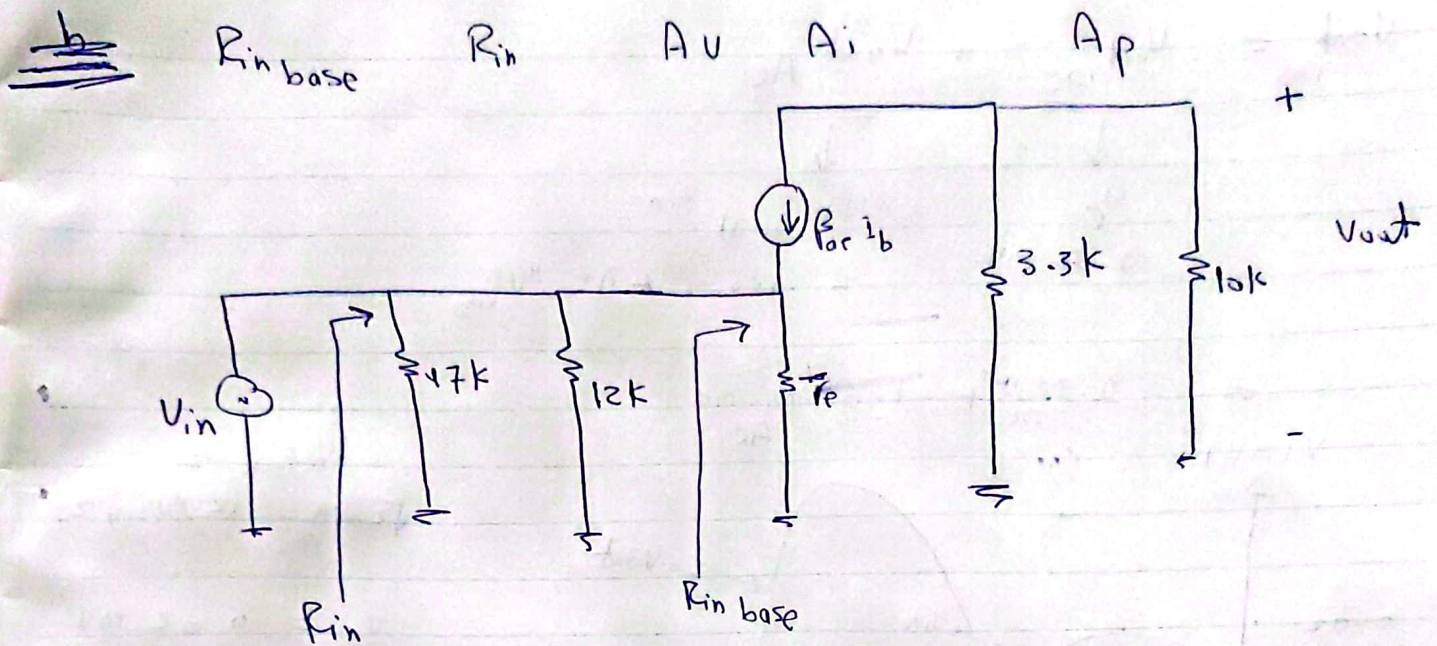 b R_in base R_in Av Ai Ap
+
β_ac i_b
Vout
3.3k
10k
47k
12k
r_e
Vin
-
R_in
R_in base